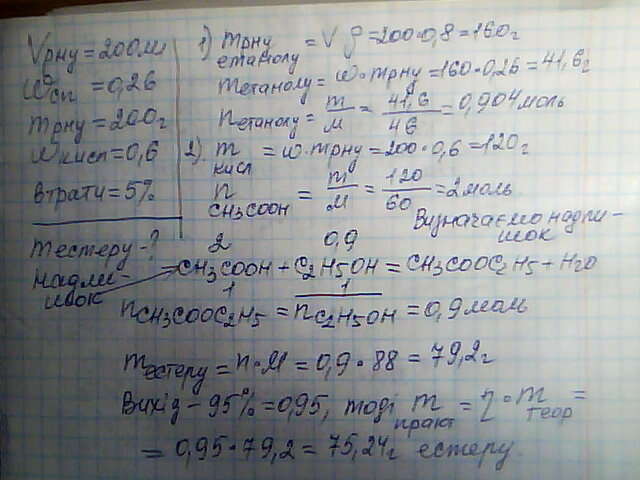 Vрну = 200мл
ωсп = 0,26
mрну = 200г
ωкисп = 0,6
Втрати = 5%
mестеру - ?
1) mрну етанолу = V ρ = 200·0,8 = 160г
mетанолу = ω·mрну = 160·0,26 = 41,6г
nетанолу = m/M = 41,6/46 = 0,904 моль
2) m кисл = ω·mрну = 200·0,6 = 120г
n CH3COOH = m/M = 120/60 = 2 моль
Визначаємо надли-
шок
2 0,9
надли-
шок
CH3COOH + C2H5OH = CH3COOC2H5 + H2O
1 1
nCH3COOC2H5 = nC2H5OH = 0,9 моль
mестеру = n·M = 0,9·88 = 79,2г
Вихід - 95% = 0,95, тоді m практ = η·m теор =
= 0,95·79,2 = 75,24г естеру.